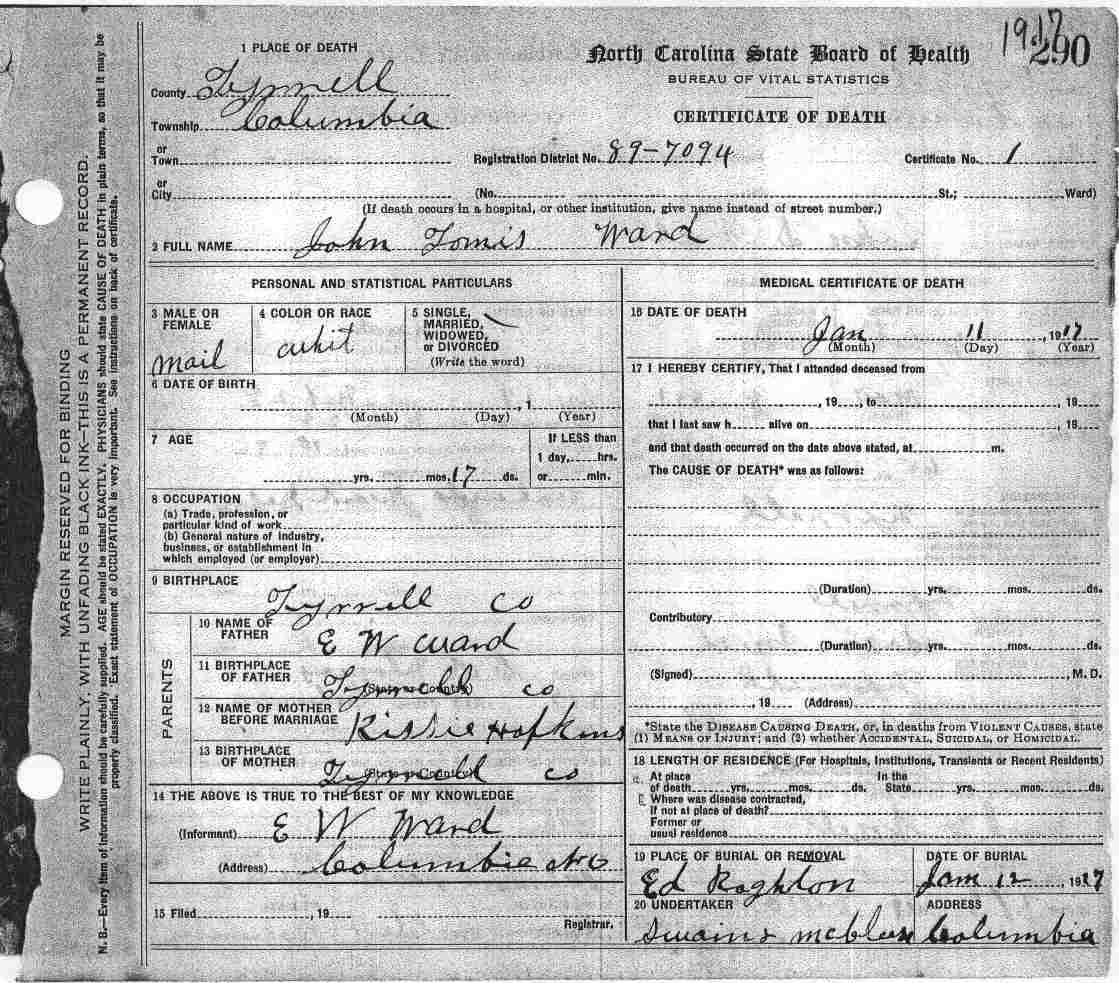 1917
290
North Carolina State Board of Health
BUREAU OF VITAL STATISTICS
CERTIFICATE OF DEATH
1 PLACE OF DEATH
County Tyrrell
Township Columbia
or
Town
Registration District No. 89-7094 Certificate No. 1
or
City (No. St.; Ward)
(If death occurs in a hospital, or other institution, give name instead of street number.)
2 FULL NAME John Tomis Ward
MARGIN RESERVED FOR BINDING
WRITE PLAINLY, WITH UNFADING BLACK INK–THIS IS A PERMANENT RECORD.
N. B.—Every item of information should be carefully supplied. AGE should be stated EXACTLY. PHYSICIANS should state CAUSE OF DEATH in plain terms, so that it may be
properly classified. Exact statement of OCCUPATION is very important. See instructions on back of certificate.
PERSONAL AND STATISTICAL PARTICULARS
3 MALE OR
FEMALE
mail
4 COLOR OR RACE
whit
5 SINGLE,
MARRIED,
WIDOWED,
or DIVORCED
(Write the word)
6 DATE OF BIRTH
, 1
(Month) (Day) (Year)
7 AGE
yrs. mos. 17 ds.
If LESS than
1 day, hrs.
or min.
8 OCCUPATION
(a) Trade, profession, or
particular kind of work
(b) General nature of industry,
business, or establishment in
which employed (or employer)
9 BIRTHPLACE
Tyrrell co
PARENTS
10 NAME OF
FATHER
E W Ward
11 BIRTHPLACE
OF FATHER
(State or Country)
Tyrrell co
12 NAME OF MOTHER
BEFORE MARRIAGE
Kissie Hopkins
13 BIRTHPLACE
OF MOTHER
(State or Country)
Tyrrell co
14 THE ABOVE IS TRUE TO THE BEST OF MY KNOWLEDGE
(Informant) E W Ward
(Address) Columbia NC
15 Filed , 19
Registrar.
MEDICAL CERTIFICATE OF DEATH
16 DATE OF DEATH
Jan 11 , 1917
(Month) (Day) (Year)
17 I HEREBY CERTIFY, That I attended deceased from
, 19 , to , 19
that I last saw h alive on , 19
and that death occurred on the date above stated, at m.
The CAUSE OF DEATH* was as follows:
(Duration) yrs. mos. ds.
Contributory
(Duration) yrs. mos. ds.
(Signed) , M. D.
, 19 (Address)
*State the DISEASE CAUSING DEATH, or, in deaths from VIOLENT CAUSES, state
(1) MEANS OF INJURY; and (2) whether ACCIDENTAL, SUICIDAL, or HOMICIDAL.
18 LENGTH OF RESIDENCE (For Hospitals, Institutions, Transients or Recent Residents)
At place In the
of death yrs. mos. ds. State yrs. mos. ds.
Where was disease contracted,
If not at place of death?
Former or
usual residence
19 PLACE OF BURIAL OR REMOVAL
Ed Roghton
DATE OF BURIAL
Jan 12 , 1917
20 UNDERTAKER
Swain &
ADDRESS
Columbia